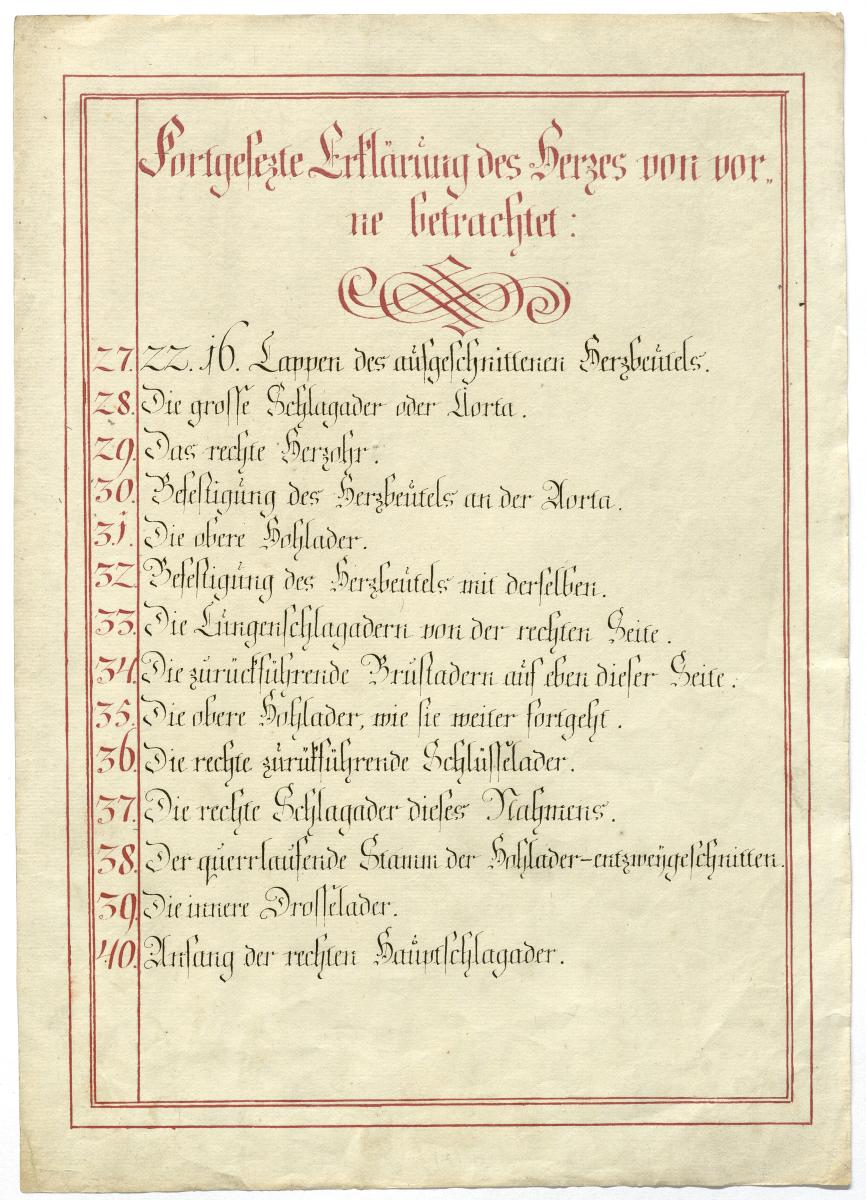 Fortgesezte Erklärung des Herzes von vor„
ne betrachtet:
27. 22. 16. Lappen des aufgeschnittenen Herzbeutels.
28. Die grosse Schlagader oder Aorta.
29. Das rechte Herzohr.
30. Befestigung des Herzbeutels an der Aorta.
31. Die obere Hohlader.
32. Befestigung des Herzbeutels mit derselben.
33. Die Lungenschlagadern von der rechten Seite.
34. Die zurückführende Brustadern auf eben dieser Seite.
35. Die obere Hohlader, wie sie weiter fortgeht.
36. Die rechte zürükführende Schlüsselader.
37. Die rechte Schlagader dieses Nahmens.
38. Der querrlaufende Stamm der Hohlader-entzweygeschnitten.
39. Die innere Drosselader.
40. Anfang der rechten Hauptschlagader.